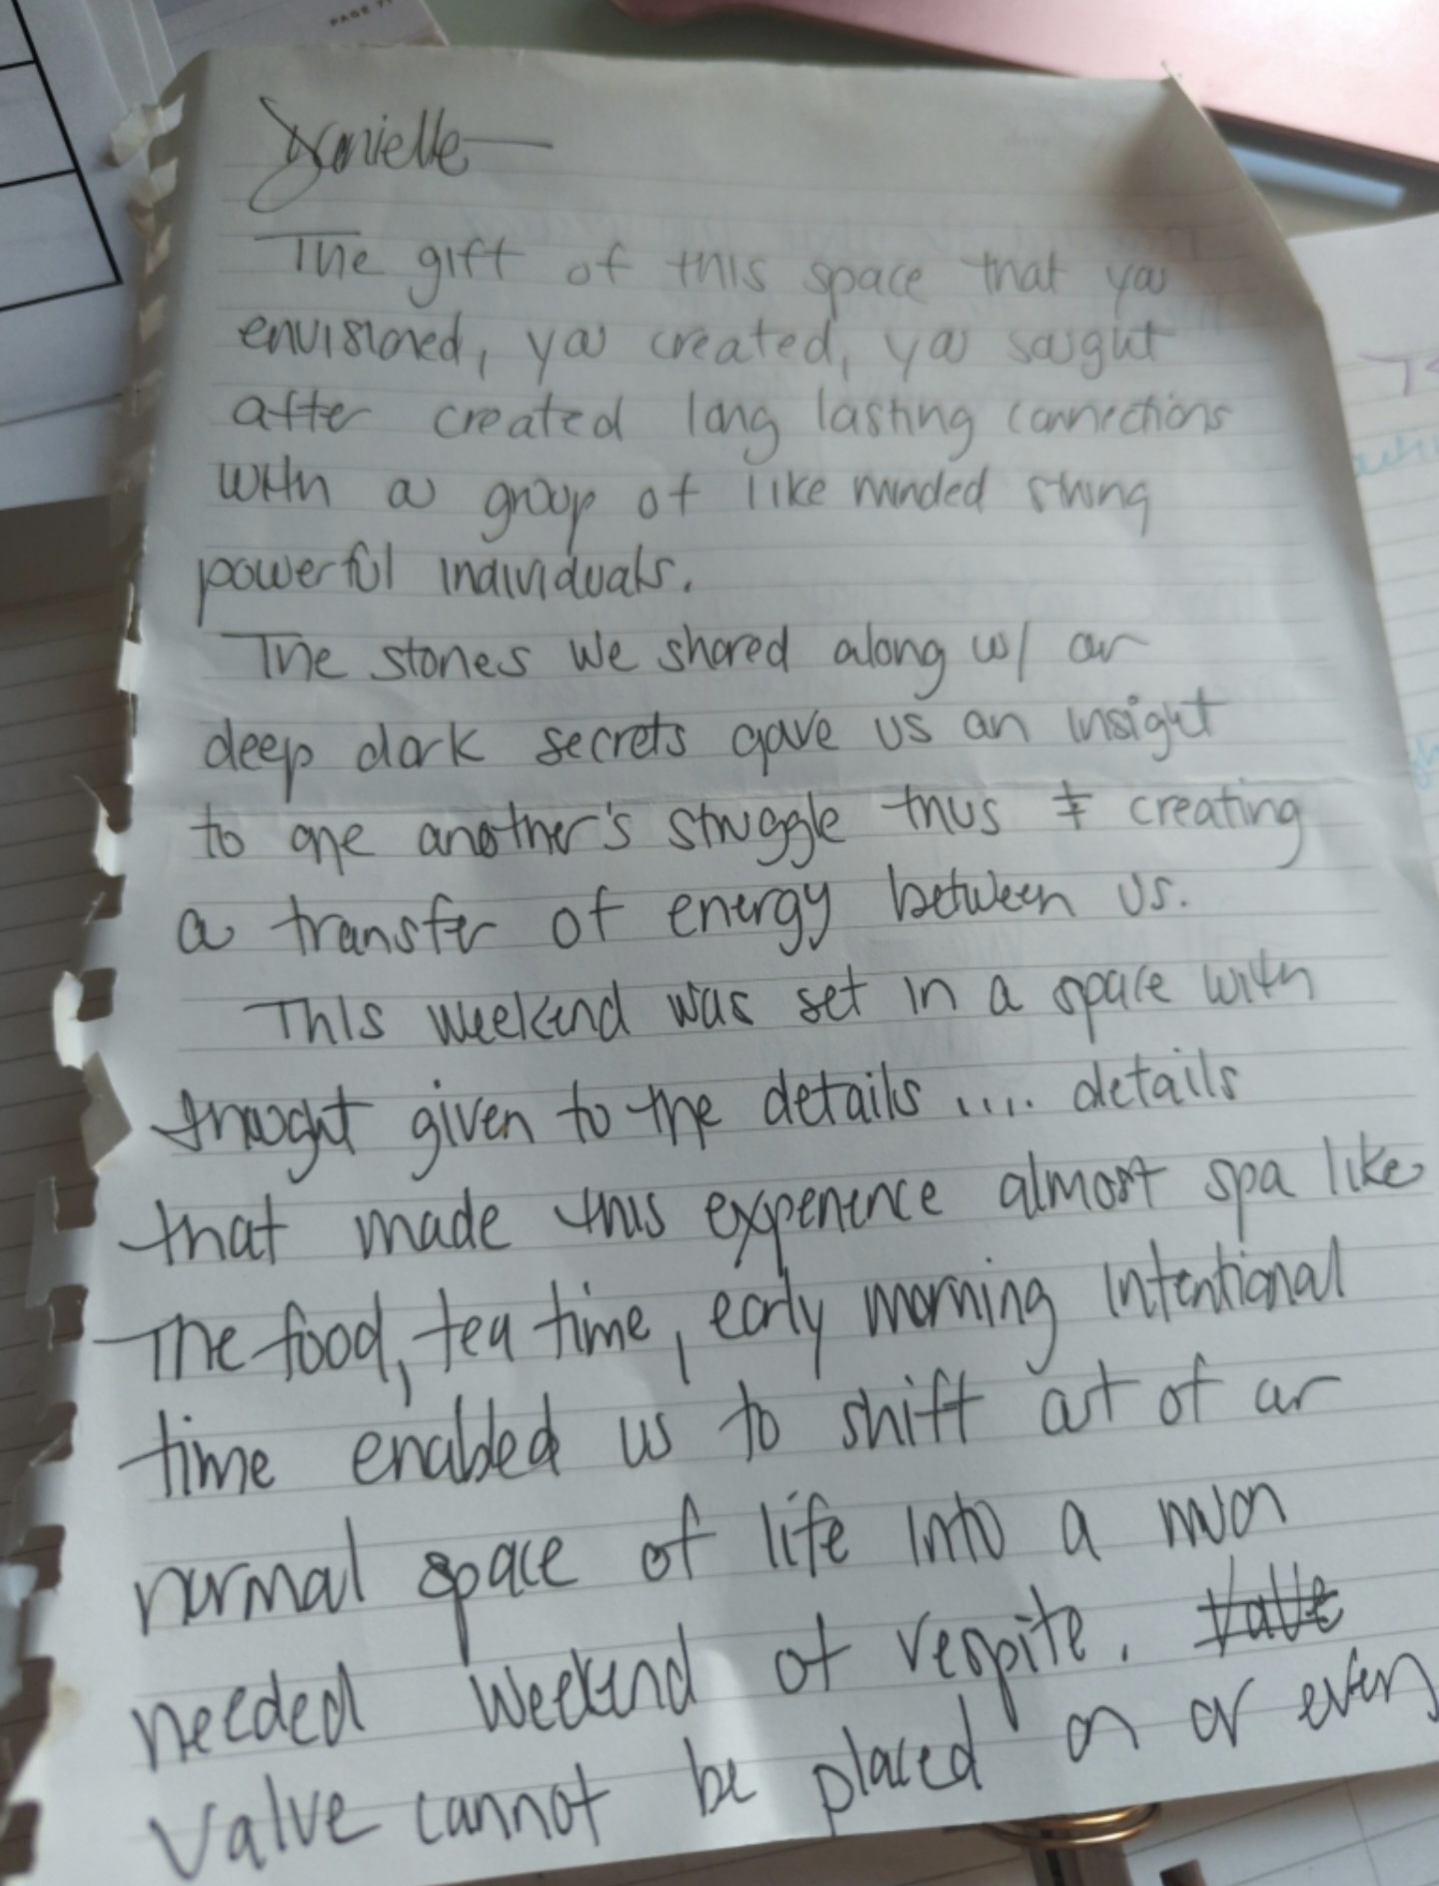 PAGE 71
Danielle—
The gift of this space that you
envisioned, you created, you sought
after created long lasting connections
with a group of like minded strong
powerful individuals.
The stories we shared along w/ our
deep dark secrets gave us an insight
to one another's struggle thus creating
a transfer of energy between us.
This weekend was set in a space with
thought given to the details .... details
that made this experience almost spa like
The food, tea time, early morning intentional
time enabled us to shift out of our
normal space of life into a much
needed weekend of respite. Value
Value cannot be placed on or even